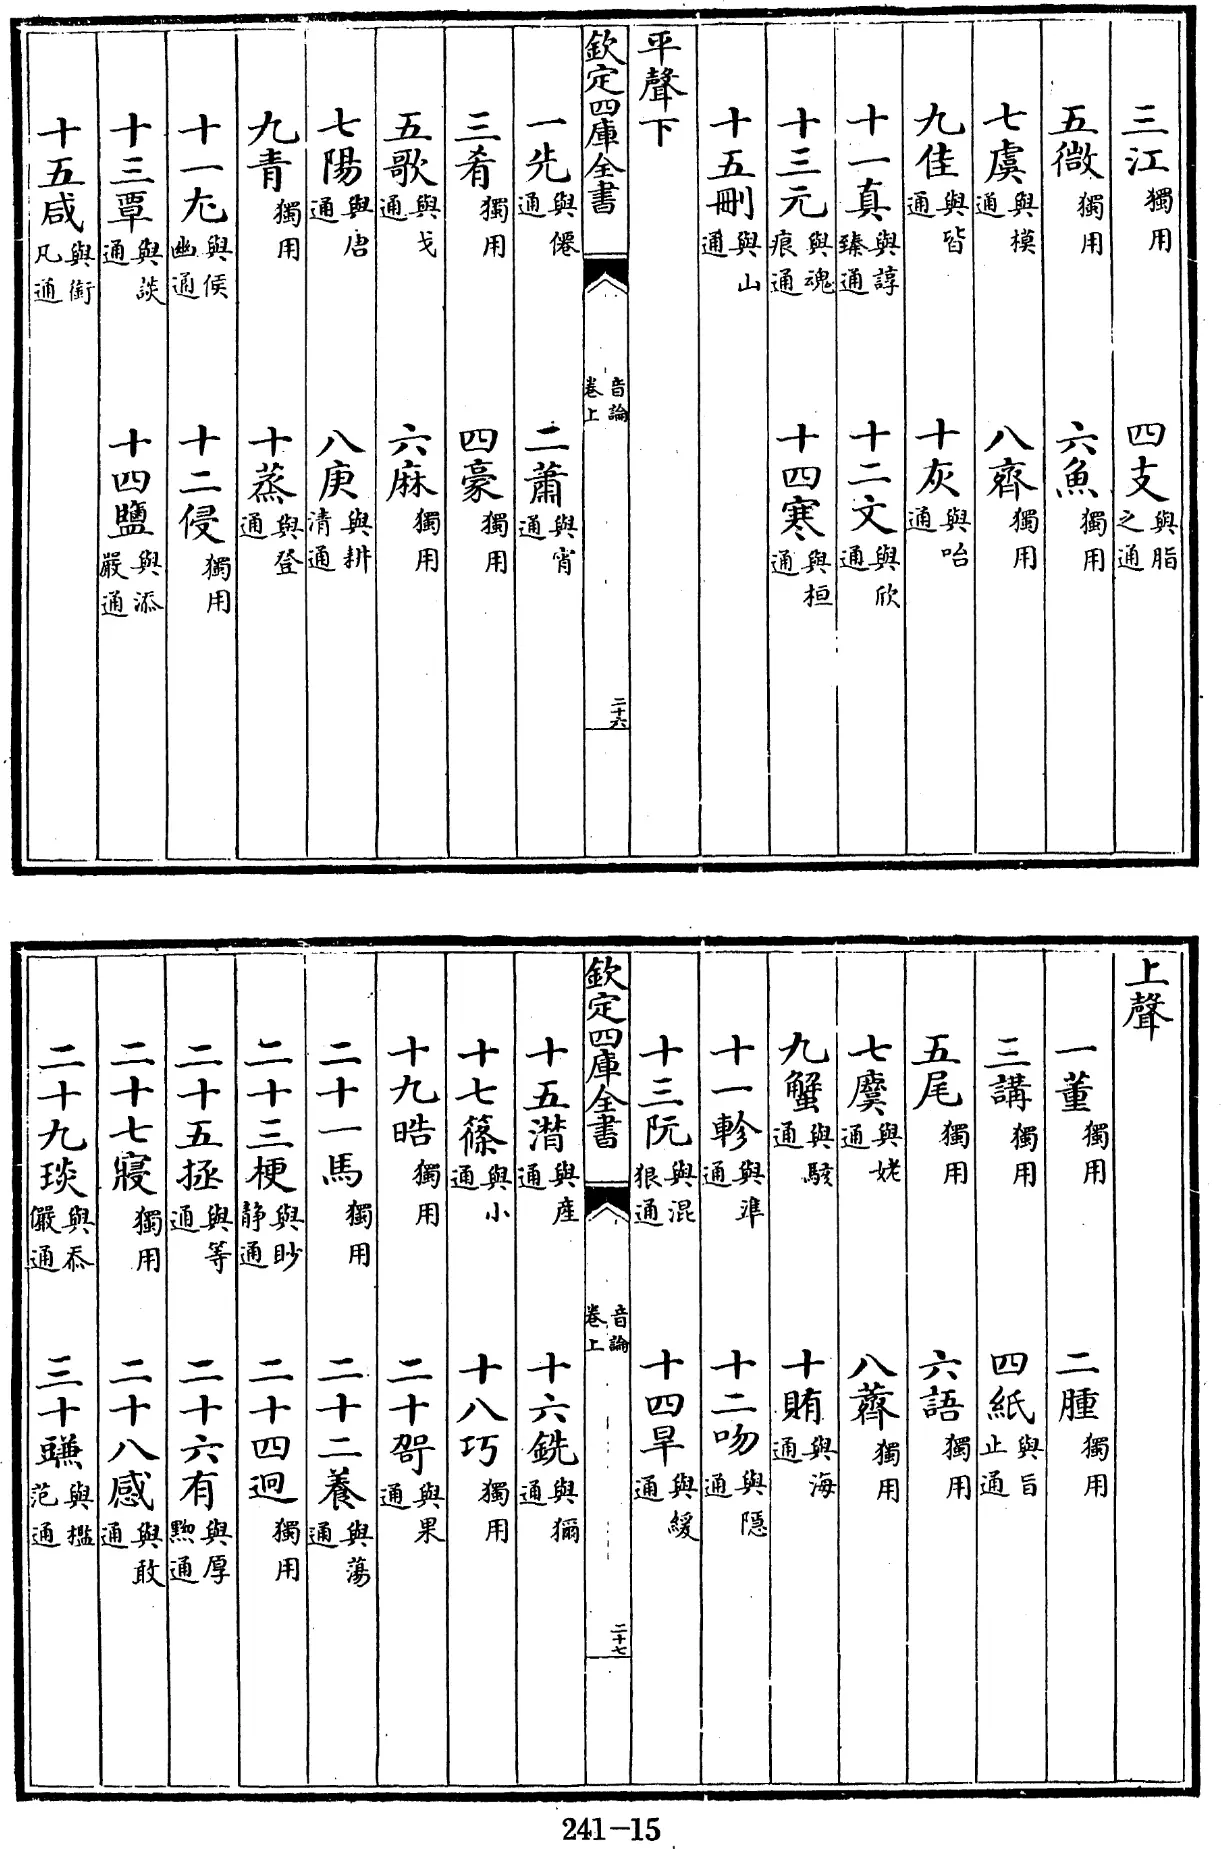 三江獨用　四支與脂之通
五微獨用　六魚獨用
七虞與模通　八齊獨用
九佳與皆通　十灰與咍通
十一真與諄臻通　十二文與欣通
十三元與魂痕通　十四寒與桓通
十五刪與山通
平聲下
欽定四庫全書　音論卷上　二十六
一先與僊通　二蕭與宵通
三肴獨用　四豪獨用
五歌與戈通　六麻獨用
七陽與唐通　八庚與耕清通
九青獨用　十蒸與登通
十一尤與侯幽通　十二侵獨用
十三覃與談通　十四鹽與添嚴通
十五咸與銜凡通
上聲
一董獨用　二腫獨用
三講獨用　四紙與旨止通
五尾獨用　六語獨用
七麌與姥通　八薺獨用
九蟹與駭通　十賄與海通
十一軫與準通　十二吻與隱通
十三阮與混狠通　十四旱與緩通
欽定四庫全書　音論卷上　二十七
十五潸與產通　十六銑與獮通
十七篠與小通　十八巧獨用
十九晧獨用　二十哿與果通
二十一馬獨用　二十二養與蕩通
二十三梗與眇靜通　二十四迥獨用
二十五拯與等通　二十六有與厚黝通
二十七寑獨用　二十八感與敢通
二十九琰與忝儼通　三十豏與檻范通
241-15